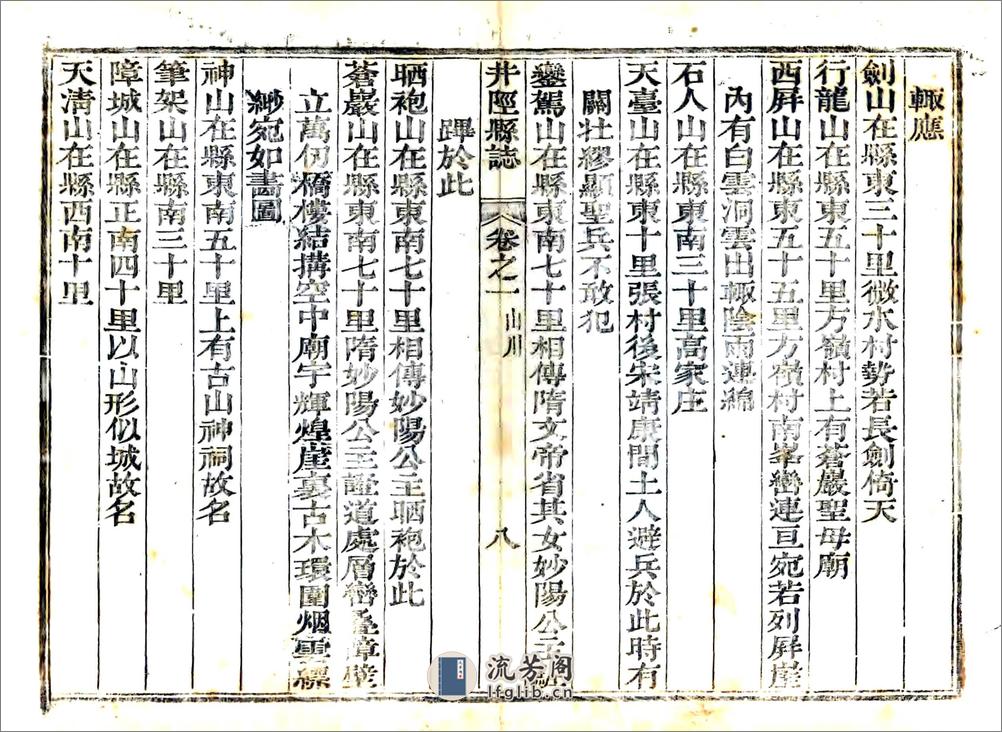 輙應
劍山在縣東三十里微水村勢若長劍倚天
行龍山在縣東五十里方嶺村上有蒼巖聖母廟
西屛山在縣東五十五里方嶺村南峯巒連亘宛若列屛崖
內有白雲洞雲出輙陰雨連綿
石人山在縣東南三十里高家庄
天臺山在縣東十里張村後宋靖康間土人避兵於此時有
關壯繆顯聖兵不敢犯
鑾駕山在縣東南七十里相傳隋文帝省其女妙陽公主
井陘縣誌
卷之一
山川
八
蹕於此
晒袍山在縣東南七十里相傳妙陽公主晒袍於此
蒼巖山在縣東南七十里隋妙陽公主證道處層巒疊障壁
立萬仞橋樓結搆空中廟宇輝煌崖裏古木環圍烟雲縹
緲宛如畵圖
神山在縣東南五十里上有古山神祠故名
筆架山在縣南三十里
障城山在縣正南四十里以山形似城故名
天淸山在縣西南十里
流芳阁
lfglib.cn